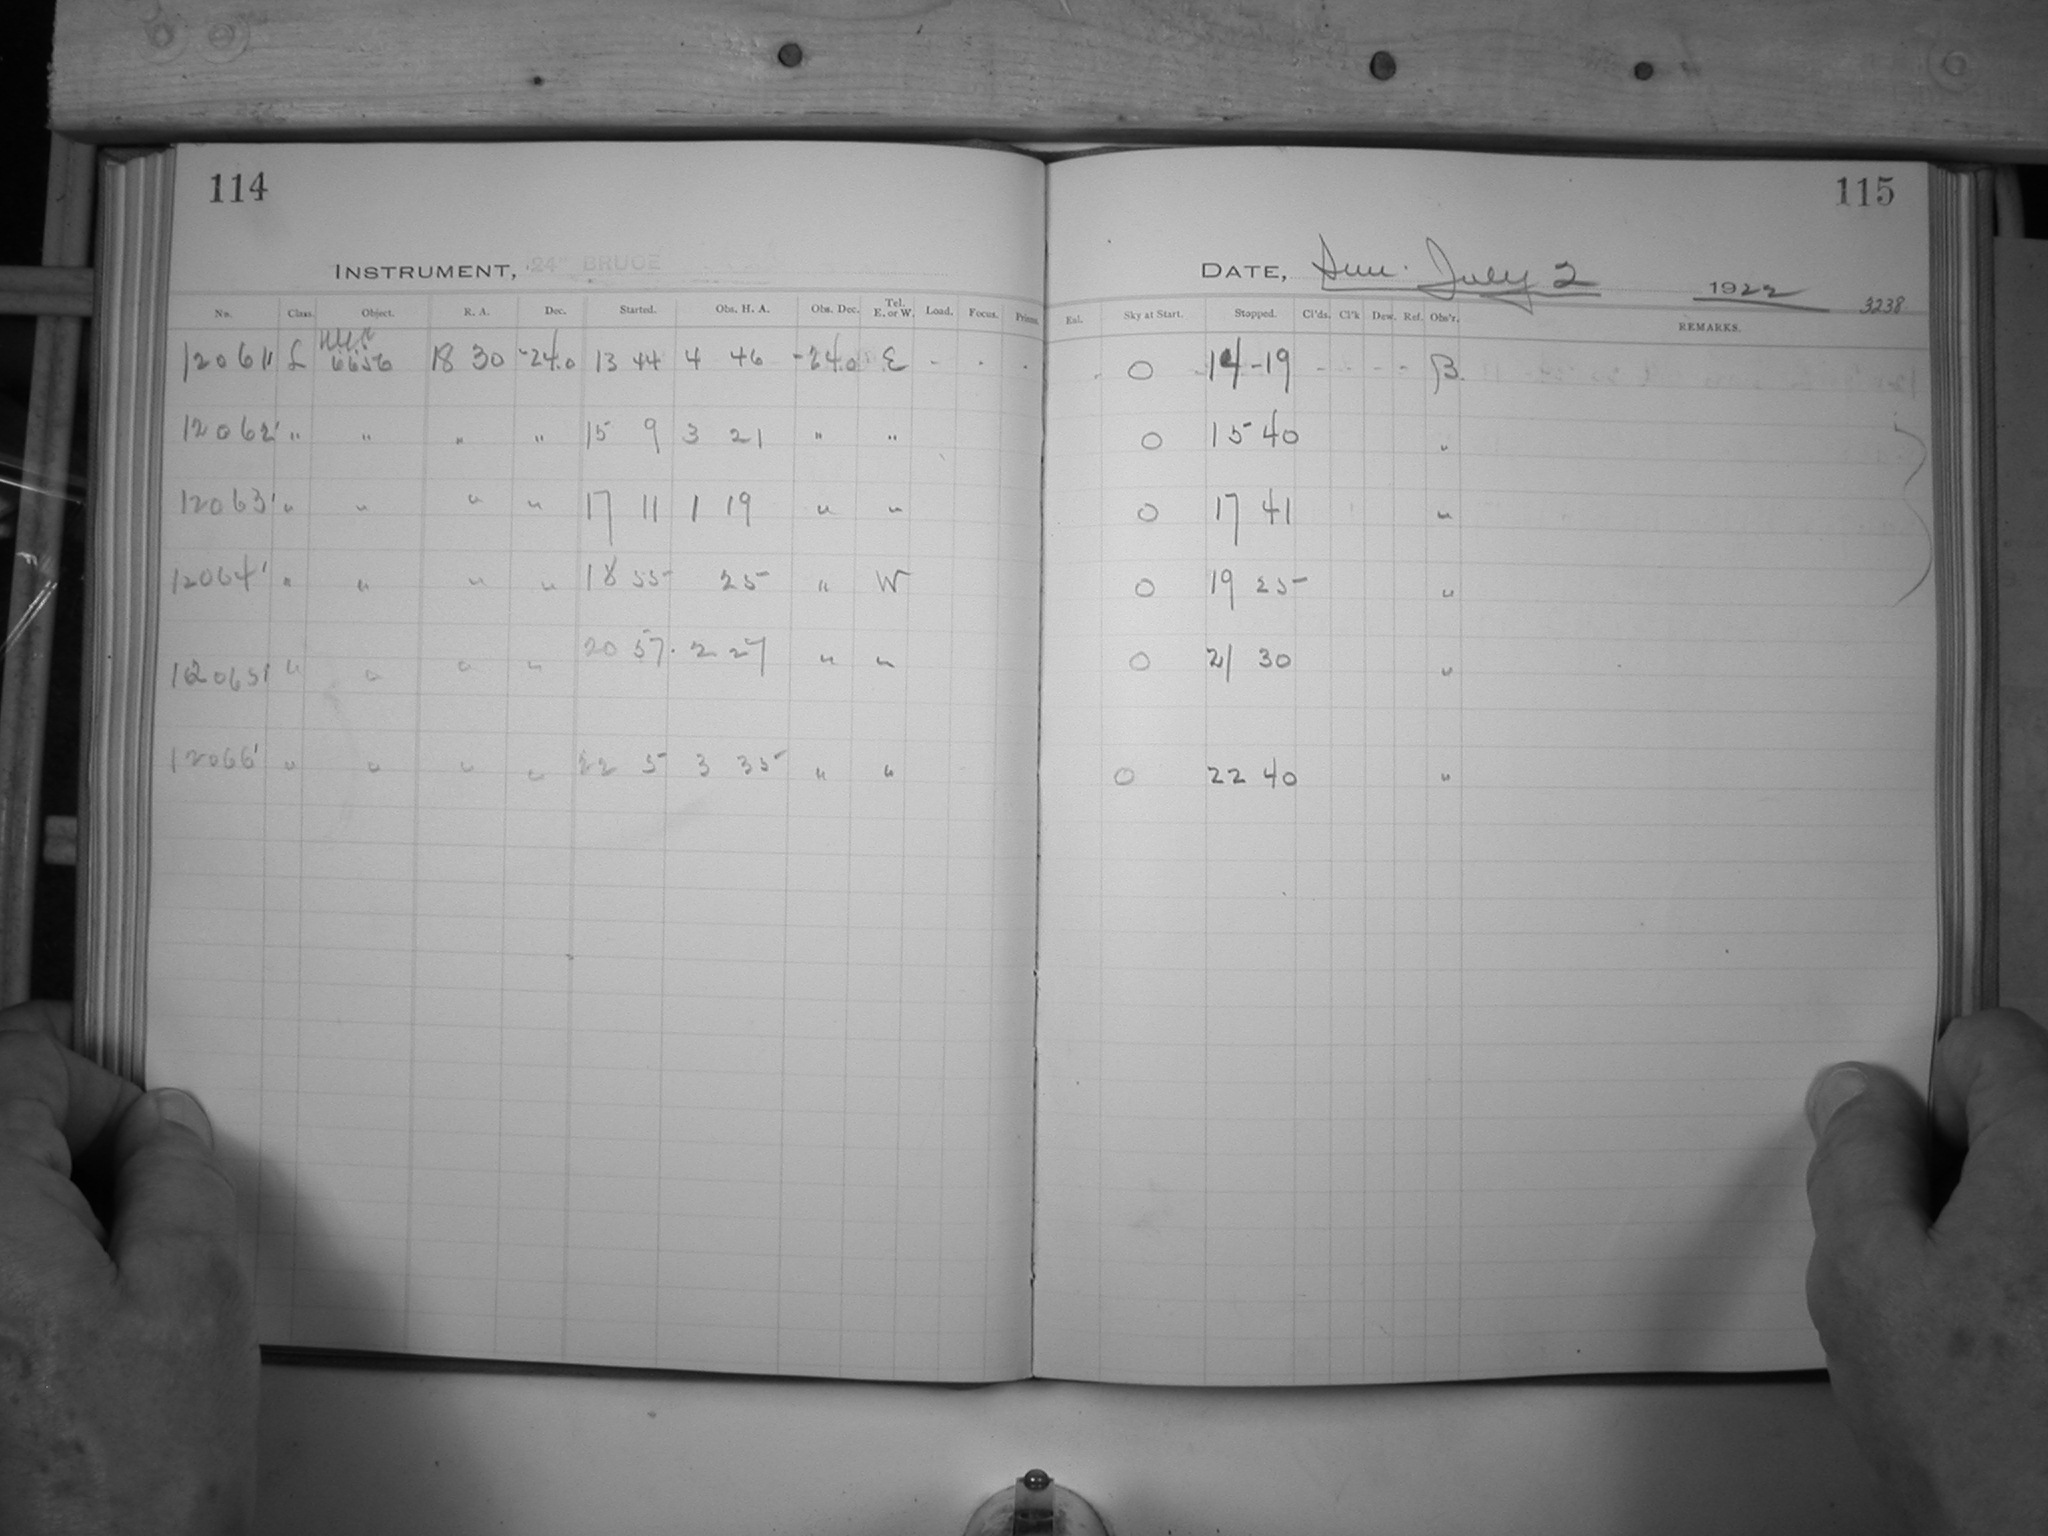 114
115
INSTRUMENT, 24" BRUCE
DATE, Sun. July 2 1922
3238
No. Class. Object. R. A. Dec. Started. Obs. H. A. Obs. Dec. Tel. E. or W. Load. Focus. Prisms. Eul. Sky at Start. Stopped. Cl'ds. Cl'k Dew. Ref. Obs'r. REMARKS.
12061 £ NGC 6656 18 30 -24.0 13 44 4 46 -24.0 E - . . . O 14-19 - - - - B.
12062 " " " " 15 9 3 21 " " O 15 40 "
12063 " " " " 17 11 1 19 " " O 17 41 "
12064 " " " " 18 55 25 " W O 19 25 "
12065 " " " " 20 57. 2 27 " " O 21 30 "
12066 " " " " 22 5 3 35 " " O 22 40 "